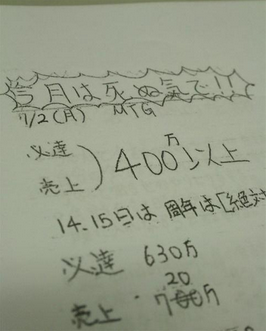 今月は死ぬ気で!!
7/2(月) MTG
必達
売上 ) 400万以上
14.15日は 周年は[絶対
必達 630万
20
売上 7万